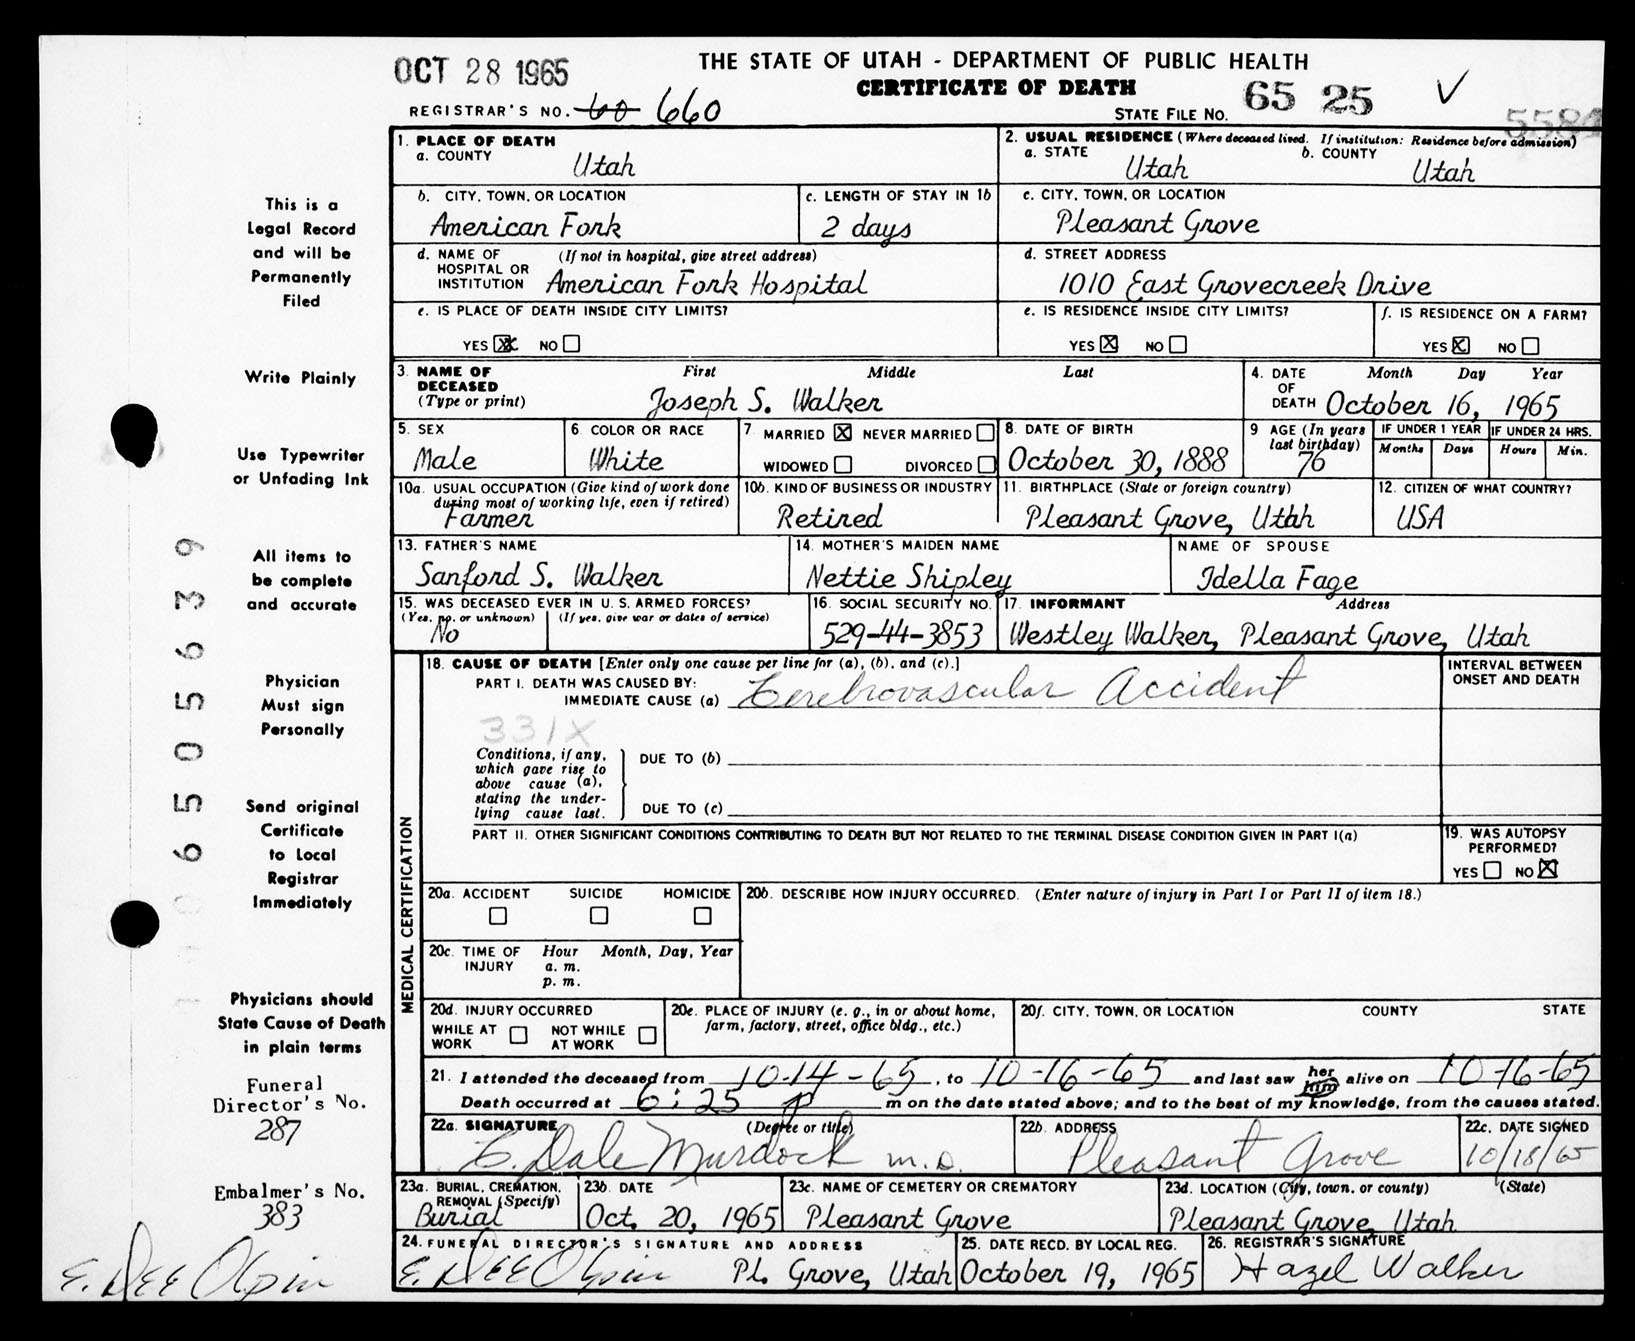 OCT 28 1965
THE STATE OF UTAH - DEPARTMENT OF PUBLIC HEALTH
CERTIFICATE OF DEATH
REGISTRAR'S NO. 60 660
STATE FILE NO. 65 25 5584
1. PLACE OF DEATH
a. COUNTY Utah
2. USUAL RESIDENCE (Where deceased lived. If institution: Residence before admission)
a. STATE Utah b. COUNTY Utah
b. CITY, TOWN, OR LOCATION American Fork
c. LENGTH OF STAY IN 1b 2 days
c. CITY, TOWN, OR LOCATION Pleasant Grove
d. NAME OF HOSPITAL OR INSTITUTION (If not in hospital, give street address) American Fork Hospital
d. STREET ADDRESS 1010 East Grovecreek Drive
e. IS PLACE OF DEATH INSIDE CITY LIMITS?
YES X NO
e. IS RESIDENCE INSIDE CITY LIMITS?
YES X NO
f. IS RESIDENCE ON A FARM?
YES X NO
3. NAME OF DECEASED (Type or print) First Middle Last
Joseph S. Walker
4. DATE OF DEATH Month Day Year
October 16, 1965
5. SEX Male
6. COLOR OR RACE White
7. MARRIED X NEVER MARRIED
WIDOWED DIVORCED
8. DATE OF BIRTH October 30, 1888
9 AGE (In years last birthday) 76
IF UNDER 1 YEAR Months Days
IF UNDER 24 HRS. Hours Min.
10a. USUAL OCCUPATION (Give kind of work done during most of working life, even if retired) Farmer
10b. KIND OF BUSINESS OR INDUSTRY Retired
11. BIRTHPLACE (State or foreign country) Pleasant Grove, Utah
12. CITIZEN OF WHAT COUNTRY? USA
13. FATHER'S NAME Sanford S. Walker
14. MOTHER'S MAIDEN NAME Nettie Shipley
NAME OF SPOUSE Idella Fage
15. WAS DECEASED EVER IN U. S. ARMED FORCES?
(Yes, no, or unknown) (If yes, give war or dates of service)
No
16. SOCIAL SECURITY NO. 529-44-3853
17. INFORMANT Address
Westley Walker, Pleasant Grove, Utah
MEDICAL CERTIFICATION
18. CAUSE OF DEATH [Enter only one cause per line for (a), (b), and (c).]
PART I. DEATH WAS CAUSED BY:
IMMEDIATE CAUSE (a) Cerebrovascular Accident
INTERVAL BETWEEN ONSET AND DEATH
331X
Conditions, if any, which gave rise to above cause (a), stating the underlying cause last.
DUE TO (b)
DUE TO (c)
PART II. OTHER SIGNIFICANT CONDITIONS CONTRIBUTING TO DEATH BUT NOT RELATED TO THE TERMINAL DISEASE CONDITION GIVEN IN PART I(a)
19. WAS AUTOPSY PERFORMED?
YES NO X
20a. ACCIDENT SUICIDE HOMICIDE
20b. DESCRIBE HOW INJURY OCCURRED. (Enter nature of injury in Part I or Part II of item 18.)
20c. TIME OF INJURY Hour Month, Day, Year
a. m.
p. m.
20d. INJURY OCCURRED
WHILE AT WORK NOT WHILE AT WORK
20e. PLACE OF INJURY (e. g., in or about home, farm, factory, street, office bldg., etc.)
20f. CITY, TOWN, OR LOCATION COUNTY STATE
21. I attended the deceased from 10-14-65, to 10-16-65 and last saw her him alive on 10-16-65
Death occurred at 6:25 p m on the date stated above; and to the best of my knowledge, from the causes stated.
22a. SIGNATURE (Degree or title) Dale Murdock M.D.
22b. ADDRESS Pleasant Grove
22c. DATE SIGNED 10/18/65
23a. BURIAL, CREMATION, REMOVAL (Specify) Burial
23b. DATE Oct. 20, 1965
23c. NAME OF CEMETERY OR CREMATORY Pleasant Grove
23d. LOCATION (City, town, or county) (State) Pleasant Grove, Utah
24. FUNERAL DIRECTOR'S SIGNATURE AND ADDRESS
E. Dee Olpin Pl. Grove, Utah
25. DATE RECD. BY LOCAL REG. October 19, 1965
26. REGISTRAR'S SIGNATURE Hazel Walker
This is a
Legal Record
and will be
Permanently
Filed
Write Plainly
Use Typewriter
or Unfading Ink
All items to
be complete
and accurate
Physician
Must sign
Personally
Send original
Certificate
to Local
Registrar
Immediately
Physicians should
State Cause of Death
in plain terms
Funeral
Director's No.
287
Embalmer's No.
383
E. Dee Olpin
6505639